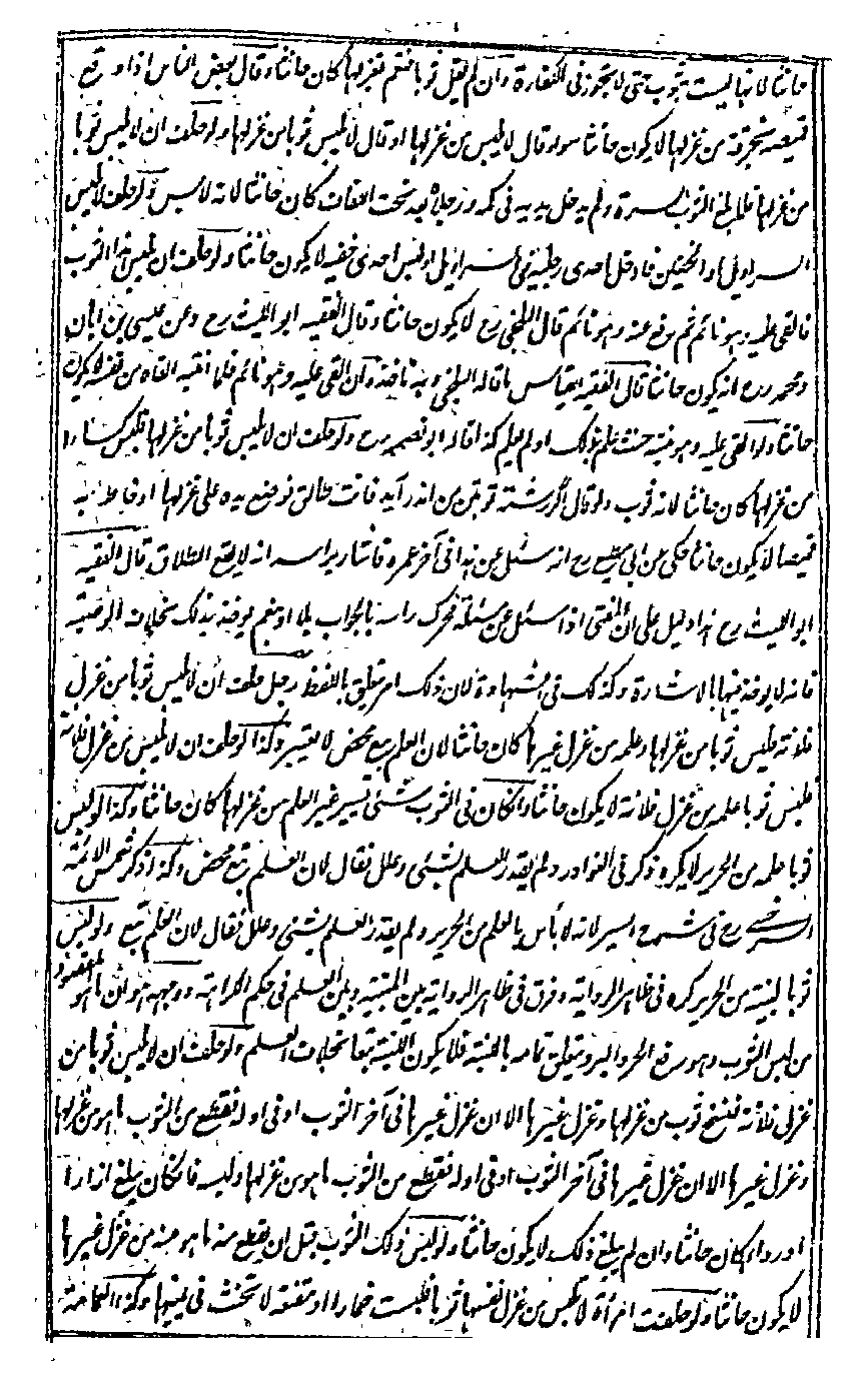 حانثا لانها ليست بثوب حتى لا يجوز فى الكفارة وان لم يقل ثوبا فتعمم بغزلها كان حانثا وقال بعض الناس اذا رقع
قميصه بخرقة من غزلها لا يكون حانثا سواء قال لا يلبس من غزلها او قال لا يلبس ثوبا من غزلها ولو حلف ان لا يلبس ثوبا
من غزلها فلما بلغ الثوب السرة ولم يدخل يديه فى كمه ورجلاه بعد تحت اللحاف كان حانثا لانه لابس ولو حلف لا يلبس
السراويل او الخفين فادخل احدى رجليه فى السراويل او لبس احدى خفيه لا يكون حانثا ولو حلف ان لا يلبس هذا الثوب
فالقى عليه وهو نائم ثم رفع عنه وهو نائم قال البلخى رح لا يكون حانثا وقال الفقيه ابو الليث رح وعن عيسى بن ابان
ومحمد رح انه يكون حانثا قال الفقيه القياس ما قاله البلخى وبه ناخذ وان القى عليه وهو نائم فلما انتبه القاه من نفسه لا يكون
حانثا ولو القى عليه وهو منتبه حنث علم بذلك او لم يعلم كذا قاله ابو نصر رح ولو حلف ان لا يلبس ثوبا من غزلها فلبس كساء
من غزلها كان حانثا لانه ثوب ولو قال اگر رشته تو بتن من اندر آيد فانت طالق فوضع يده على غزلها او خاط به
قميصا لا يكون حانثا حكى عن ابى مطيع رح انه سئل عن هذا فى آخر عمره فاشار براسه انه لا يقع الطلاق قال الفقيه
ابو الليث رح هذا دليل على ان المفتى اذا سئل عن مسئلة فحرك راسه بالجواب بلا او نعم يوخذ بذلك بخلاف الوصية
فانه لا يوخذ فيها بالاشارة وكذلك فى الشهادة لان ذلك امر تعلق باللفظ رجل حلف ان لا يلبس ثوبا من غزل
فلانة فلبس ثوبا من غزلها وعلمه من غزل غيرها كان حانثا لان العلم تبع محض لا يعتبر وكذا لو حلف ان لا يلبس من غزل فلانة
فلبس ثوبا علمه من غزل فلانة لا يكون حانثا وان كان فى الثوب شئ يسير غير العلم من غزلها كان حانثا وكذا لو لبس
ثوبا علمه من الحرير لا يكره ذكر فى النوادر ولم يقدر العلم بشئ وعلل فقال لان العلم تبع محض وكذا ذكر شمس الائمة
السرخسى رح فى شرح السير لانه لا بأس بالعلم من الحرير ولم يقدر العلم بشئ وعلل فقال لان العلم تبع ولو لبس
ثوبا لبنته من الحرير كره فى ظاهر الرواية وفرق فى ظاهر الرواية بين اللبنة وبين العلم فى حكم الكراهة ووجهه هو ان ما هو المقصود
من لبس الثوب وهو دفع الحر والبرد يتعلق تمامه باللبنة فلا يكون اللبنة تبعا بخلاف العلم ولو حلف ان لا يلبس ثوبا من
غزل فلانة فنسج ثوب من غزلها وغزل غيرها الا ان غزل غيرها فى آخر الثوب او فى اوله فقطع من الثوب ما هو من غزلها
وغزل غيرها الا ان غزل غيرها فى آخر الثوب او فى اوله فقطع من الثوب ما هو من غزلها ولبسه فان كان يبلغ ازارا
او رداء كان حانثا وان لم يبلغ ذلك لا يكون حانثا ولو لبس ذلك الثوب قبل ان يقطع منه ما هو منه من غزل غيرها
لا يكون حانثا ولو حلفت امرأة لا تلبس من غزل نفسها ثوبا فلبست خمارا او مقنعة لا تحنث فى يمينها وكذا العمامة